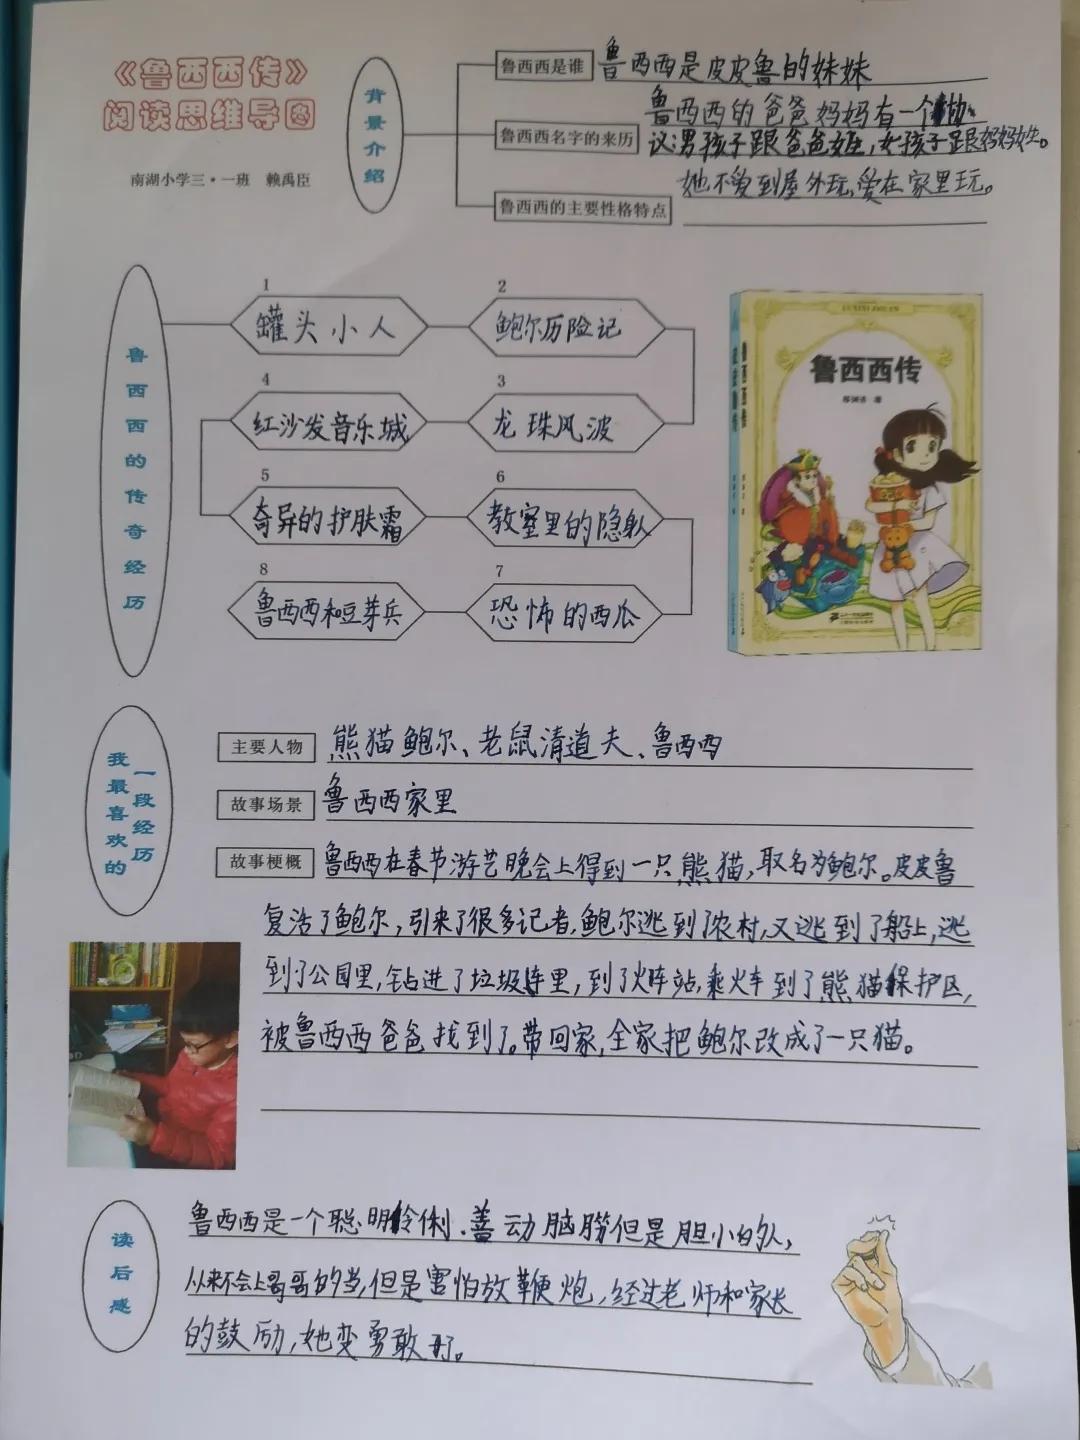 《鲁西西传》
阅读思维导图
南湖小学三·一班 赖禹臣
背景介绍
鲁西西是谁 鲁西西是皮皮鲁的妹妹
鲁西西名字的来历 鲁西西的爸爸妈妈有一个协
议男孩子跟爸爸姓,女孩子跟妈妈姓。
鲁西西的主要性格特点 她不爱到屋外玩,爱在家里玩。
鲁西西的传奇经历
1 罐头小人
2 鲍尔历险记
3 龙珠风波
4 红沙发音乐城
5 奇异的护肤霜
6 教室里的隐身人
7 恐怖的西瓜
8 鲁西西和豆芽兵
鲁西西传
郑渊洁 著
我最喜欢的
一段经历
主要人物 熊猫鲍尔、老鼠清道夫、鲁西西
故事场景 鲁西西家里
故事梗概 鲁西西在春节游艺晚会上得到一只熊猫,取名为鲍尔。皮皮鲁
复活了鲍尔,引来了很多记者,鲍尔逃到了农村,又逃到了船上,逃
到了公园里,钻进了垃圾车里,到了火车站,乘火车到了熊猫保护区,
被鲁西西爸爸找到了。带回家,全家把鲍尔改成了一只猫。
读后感
鲁西西是一个聪明伶俐.善动脑筋但是胆小的人,
从来不会上哥哥的当,但是害怕放鞭炮,经过老师和家长
的鼓励,她变勇敢了。